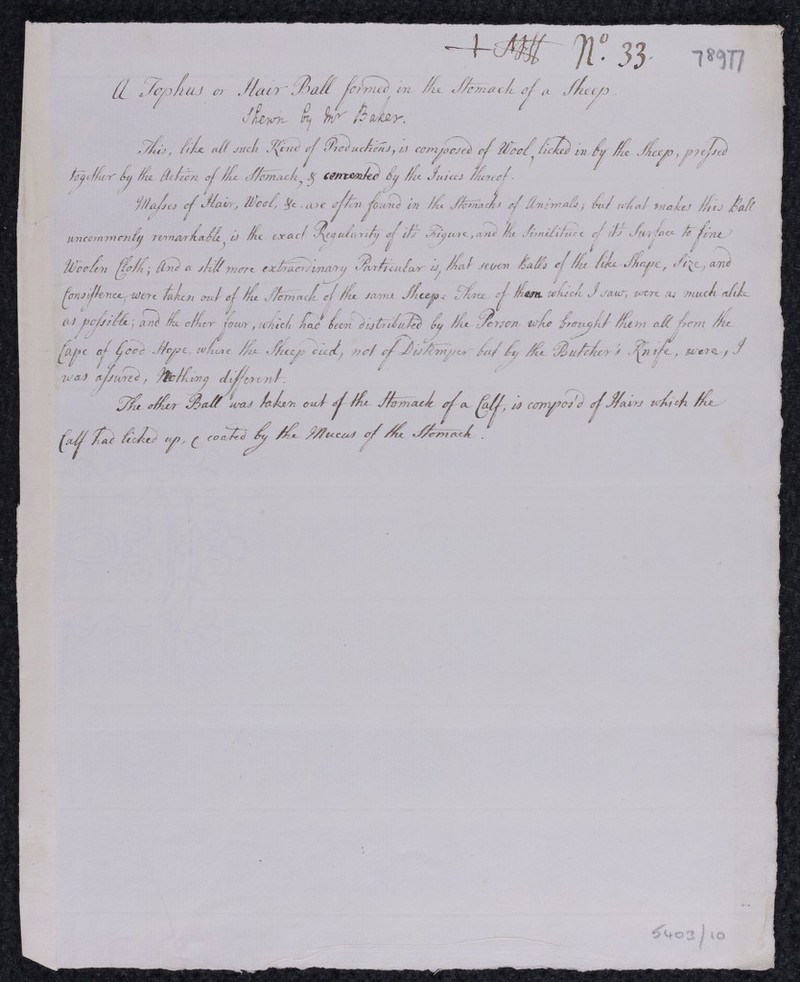 No. 33. 78977
A Tophus or Hair Ball formed in the Stomach of a Sheep.
Shewn by Mr Baker.
This, like all such Kind of Productions, is composed of Wool, licked in by the Sheep, pressed
together by the Action of the Stomach, & cemented by the Juices thereof.
Masses of Hair, Wool, &c. are often found in the Stomachs of Animals; but what makes this Ball
uncommonly remarkable, is the exact Regularity of its Figure, and the Similitude of its Surface to fine
Woolen Cloth; And a still more extraordinary Particular is, that seven Balls of the like Shape, Size, and
Consistence, were taken out of the Stomach of the same Sheep. Three of them which I saw, were as much alike
as possible; and the other four, which had been distributed by the Person who brought them all from the
Cape of Good Hope, where the Sheep died, not of Distemper but by the Butcher's Knife, were, I
was assured, Nothing different.
The other Ball was taken out of the Stomach of a Calf, is compos'd of Hairs which the
Calf had licked up, & coated by the Mucus of the Stomach.
5403/10